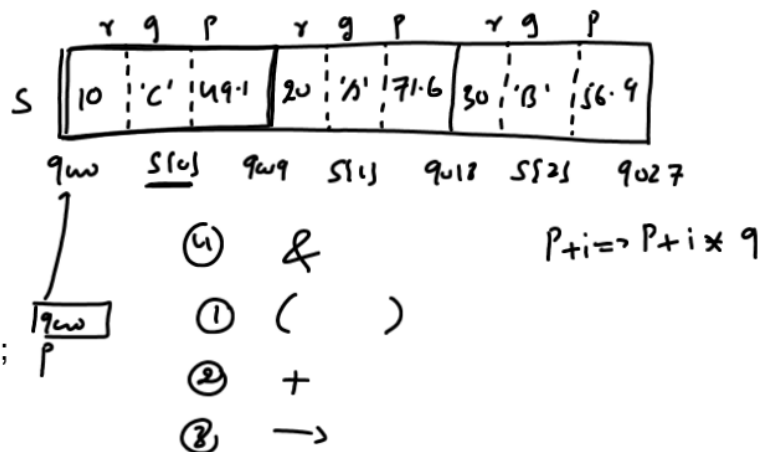 r g p r g p r g p
S 10 'C' 49.1 20 'A' 71.6 30 'B' 56.9
9000 S[0] 9009 S[1] 9018 S[2] 9027
④ & P+i=> P+i * 9
9000 ① ( )
; P
② +
③ →